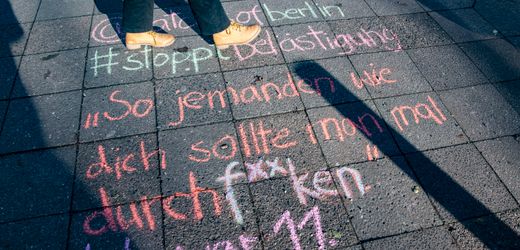 of berlin
#stoppt Belästigung
„So jemanden wie
dich sollte man mal
durchf**ken."
11.